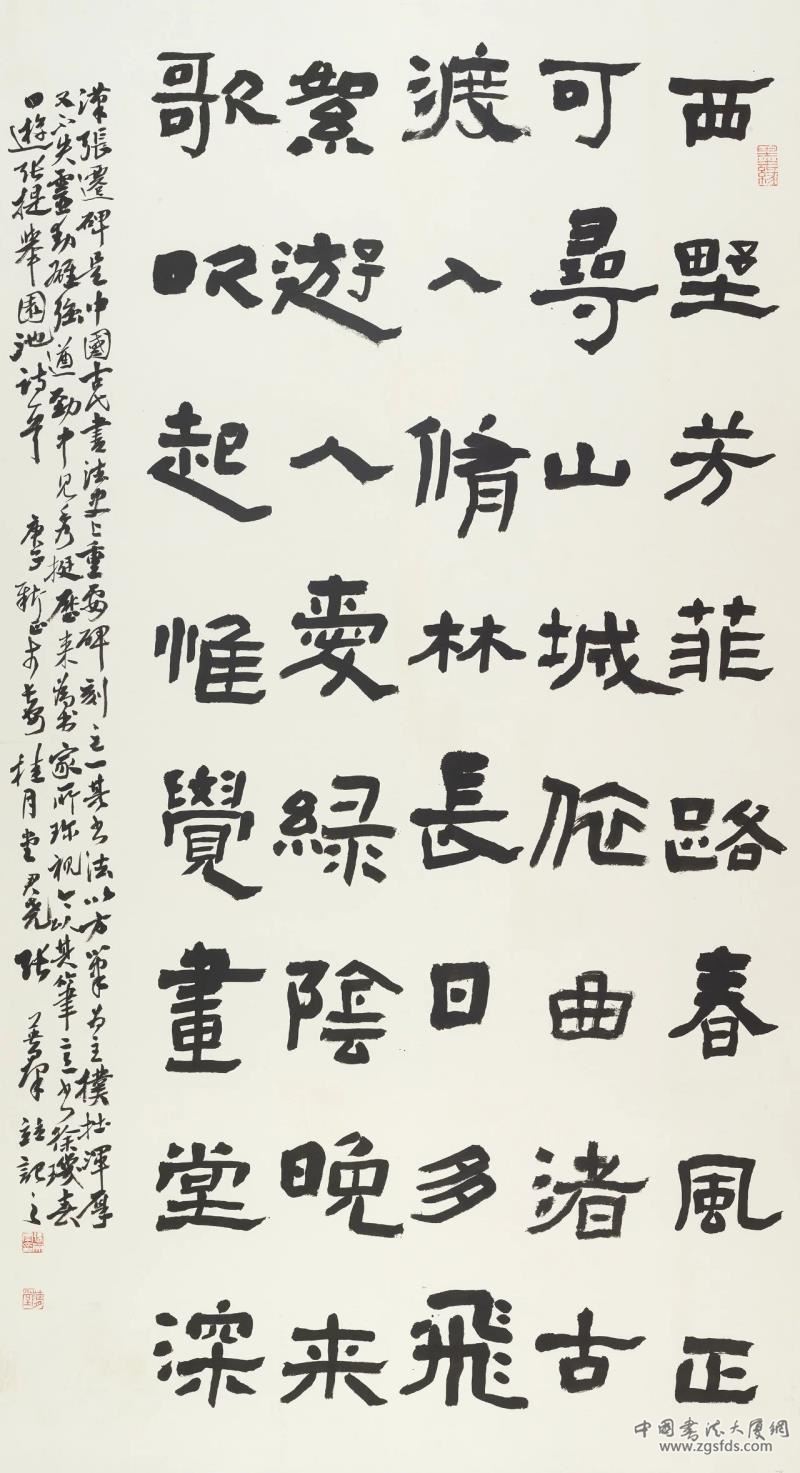 西野芳菲路春風正
可尋山城依曲渚古
渡入脩林長日多飛
絮遊人愛綠陰晚来
歌吹起惟覺畫堂深
漢張遷碑是中國古代書法史上重要碑刻之一其書法以方筆為主樸拙渾厚
又不失靈動雄強遒勁中見秀挺歷来為書家所珍視今以其筆意書徐璣春
日遊张提舉園池诗一首 庚子 桂月堂 张 記之
中國書法大厦網
www.zgsfds.com